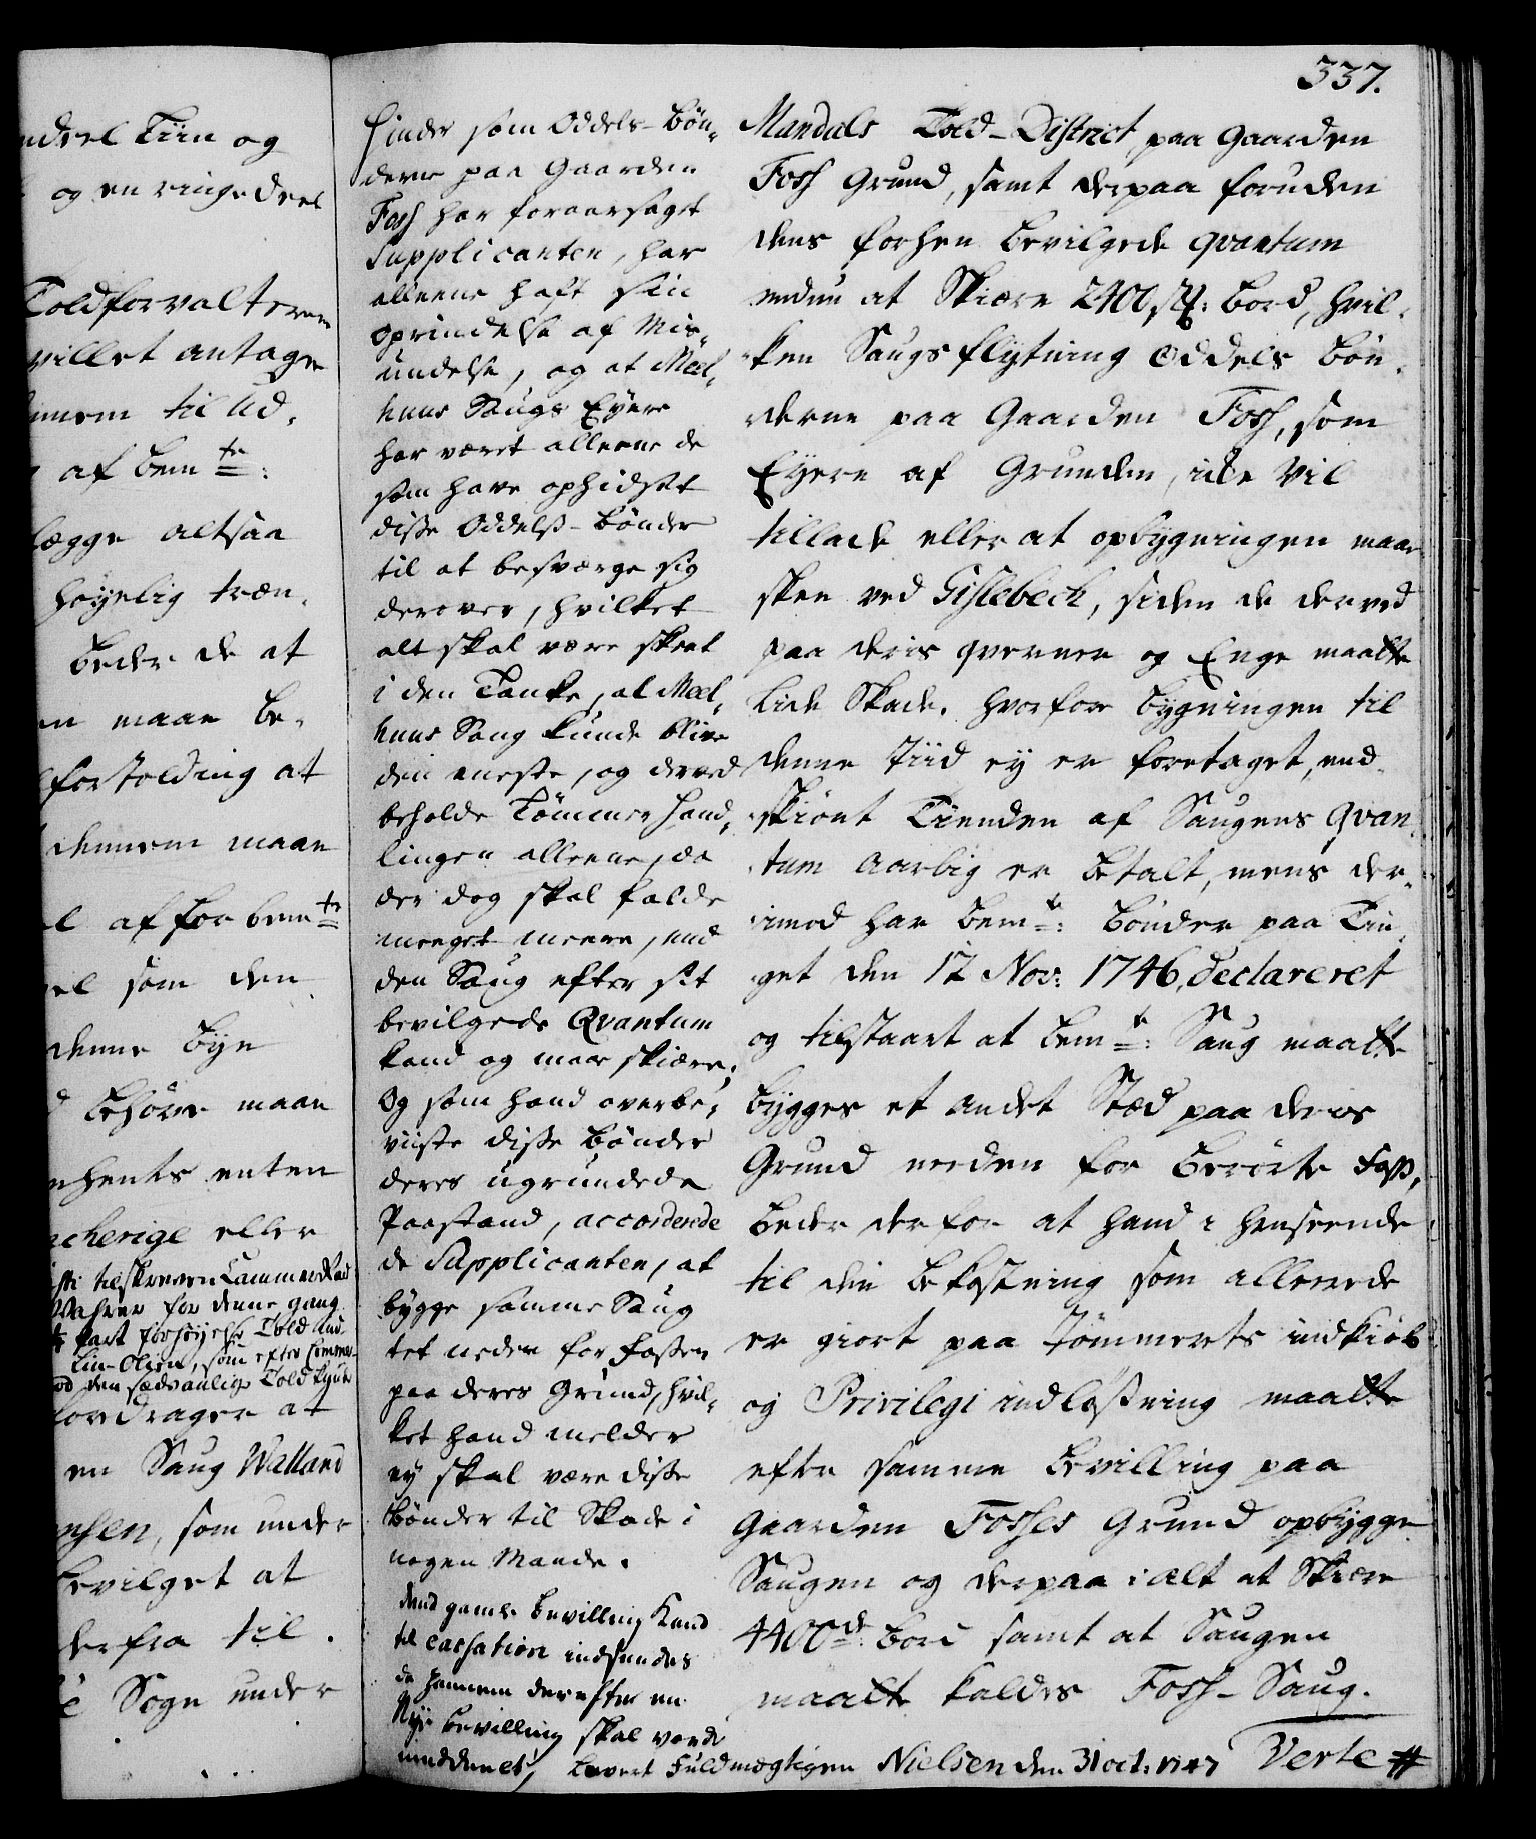 337.
ndeel Tiin og
og en ringe deel
Toldforvalteren
villet antage
til Ud-
af bem.te:
lægge altsaa
høyelig træn-
beder de at
maae be-
fortolding at
dennem maae
af forbem.te
som den
denne bye
behøver maae
enten
eller
tilskreven Cammer Raad
for denne gang
part forhøyelse Told
Lin-Olien, som efter
den sædvanlige Told
fordrager at
en Saug Walland
nsen, som under
bevilget at
derfra til
Sogn under
Hinder som Oddels-bøn-
derne paa Gaarden
Foss har foraarsaget
Supplicanten, har
alleene haft sin
Oprindelse af Mis-
undelse, og at Meel-
huus Saugs Eyere
har været alleene de
som have ophidset
disse Oddelss-bønder
til at besværge sig
derover, hvilket
alt skal være skeet
i den Tanke, at Meel-
huus Saug kunde blive
den eneste, og derved
beholde Tømmer Hand-
lingen alleene, da
der dog skal falde
meeget meere, end
den Saug efter sit
bevilgede Qvantum
kand og maae skiære;
Og som hand overbe-
viiste disse bønder
deres ugrundede
Paastand, accorderede
de Supplicanten, at
bygge samme Saug
tet neden for Fossen
paa deres Grund, hvil-
ket hand melder
ey skal være disse
bønder til Skade i
nogen Maade.
Dend gamle bevilling kand
til Cassation indsendes
da hannem derefter en
Nye bevilling skal vorde
meddeelet,
Mandals Told-District, paa Gaarden
Foss Grund, samt derpaa foruden
dens forhen bevilgede qvantum
endnu at Skiære 2400 st: bord, hvil-
ken Saugs flytning Oddels bøn-
derne paa Gaarden Foss, som
Eyere af Grunden, icke vil
tillade eller at opbygningen maae
skee ved Gislebeck, siden de derved
paa deris qverner og Enge maatte
lide Skade. hvorfor bygningen til
denne Tiid ey er foretaget, end-
skiønt Tienden af Saugens qvan-
tum aarlig er betalt, mens der-
imod har bem.te: bønder paa Tin-
get den 12 Nov: 1746, declareret
og tilstaaet at bem.te: Saug maatte
bygges et andet Stæd paa deris
Grund neden for berørte Foss,
beder derfor at hand i henseende
til den bekostning som allereede
er giort paa Tømmerets indkiøb
og Privilegi indløssning maatte
efter samme bevilling paa
Gaarden Fosses Grund opbygge
Saugen og derpaa i alt at Skiære
4400de: bord samt at Saugen
maatte kaldes Foss-Saug.
Levert Fuldmægtigen Nielsen den 31 oct: 1747 Verte #